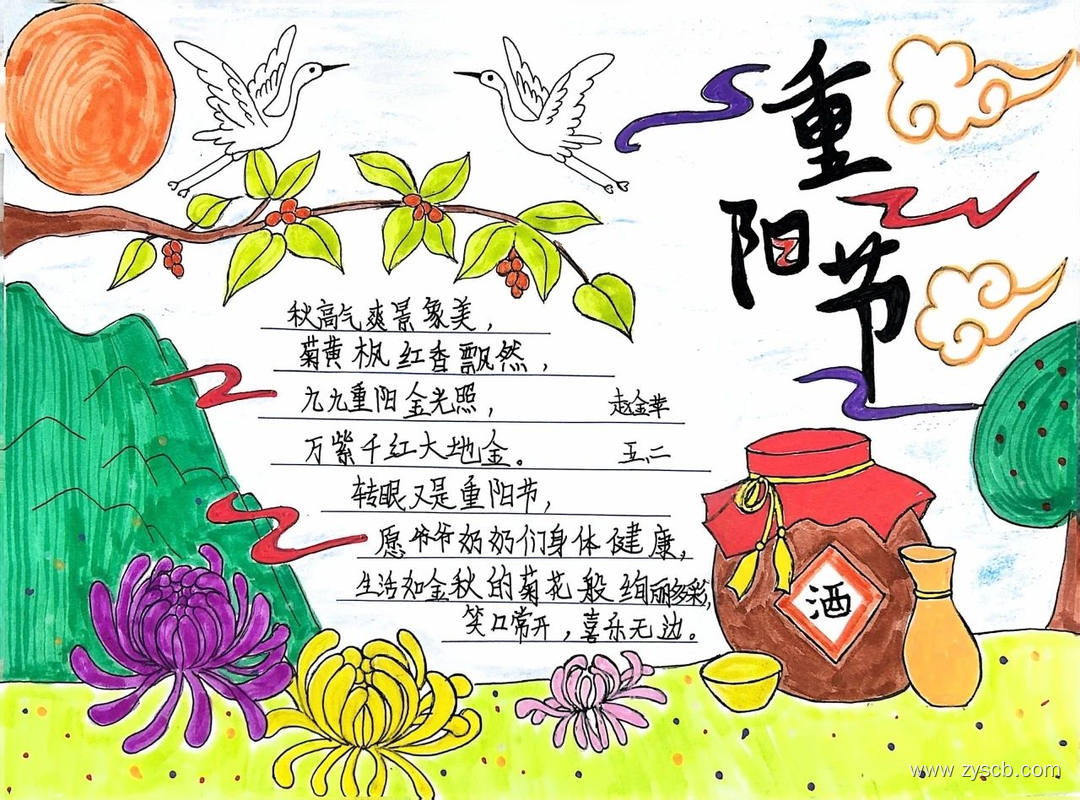 重阳节
秋高气爽景象美，
菊黄枫红香飘然，
九九重阳金光照，
赵金苹
万紫千红大地金。
五、二
转眼又是重阳节，
愿爷爷奶奶们身体健康，
生活如金秋的菊花般绚丽多彩，
笑口常开，喜乐无边。
酒
www.zyscb.com